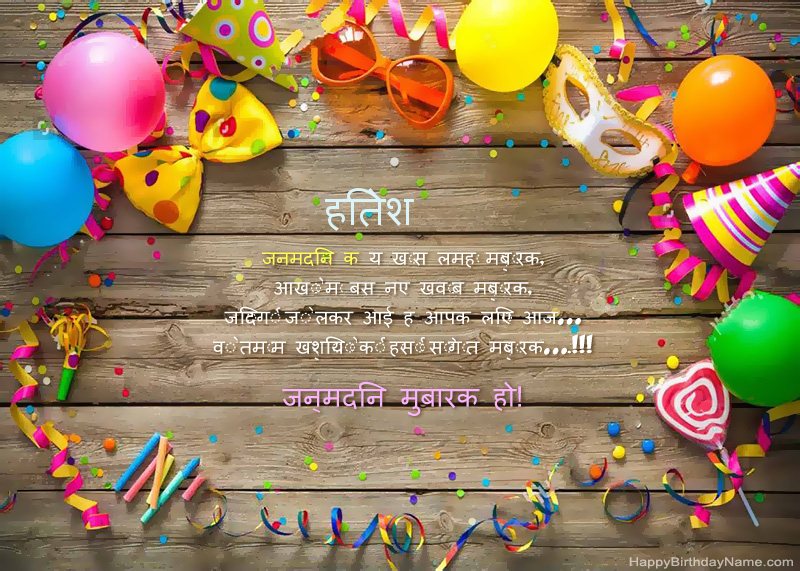 हितेश
जन्मदिन के ये ख़ास लम्हे मुबारक,
आँखों में बसे नए ख्वाब मुबारक,
जिंदगी जो लेकर आई है आपके लिए आज...
वो तमाम खुशियों की हंसीं सौगात मुबारक...!!!
जन्मदिन मुबारक हो!
HappyBirthdayName.com